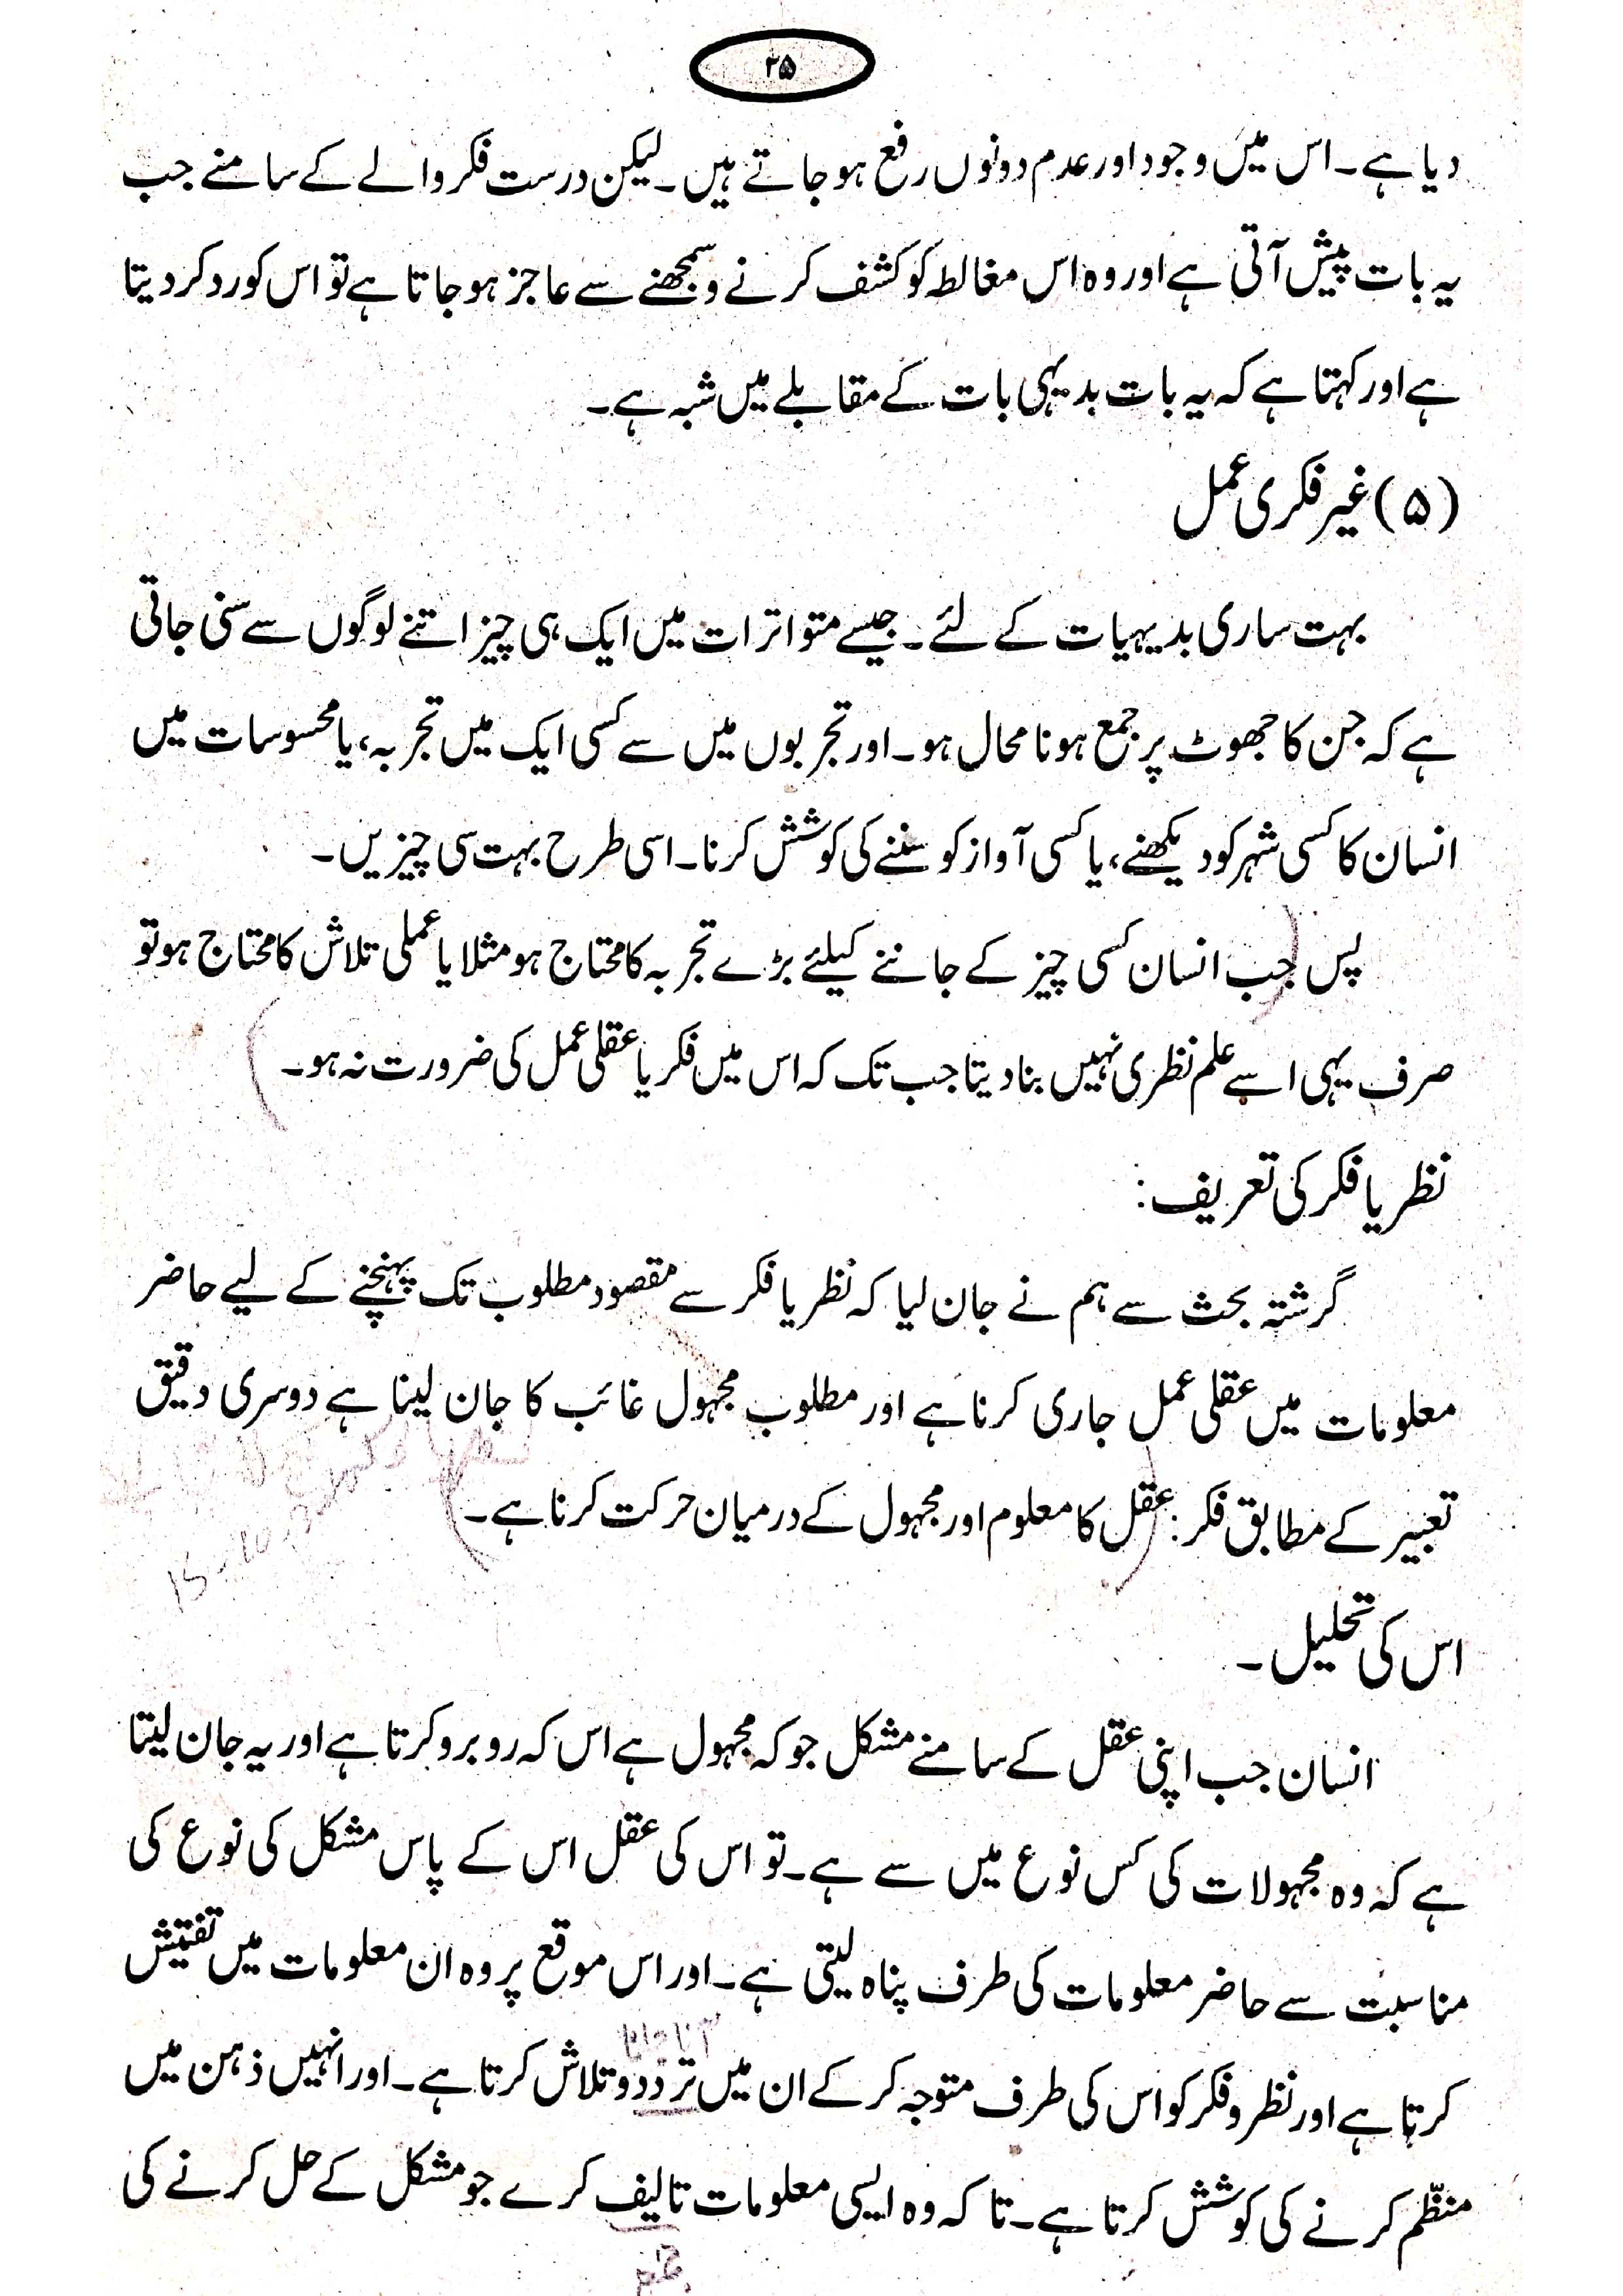 ۲۵
دیا ہے۔ اس میں وجود اور عدم دونوں رفع ہو جاتے ہیں۔ لیکن درست فکر والے کے سامنے جب
یہ بات پیش آتی ہے اور وہ اس مغالطہ کو کشف کرنے و سمجھنے سے عاجز ہو جاتا ہے تو اس کو رد کر دیتا
ہے اور کہتا ہے کہ یہ بات بدیہی بات کے مقابلے میں شبہ ہے۔
(۵) غیر فکری عمل
بہت ساری بدیہیات کے لئے۔ جیسے متواترات میں ایک ہی چیز اتنے لوگوں سے سنی جاتی
ہے کہ جن کا جھوٹ پر جمع ہونا محال ہو۔ اور تجربوں میں سے کسی ایک میں تجربہ، یا محسوسات میں
انسان کا کسی شہر کو دیکھنے، یا کسی آواز کو سننے کی کوشش کرنا۔ اسی طرح بہت سی چیزیں۔
پس (جب انسان کسی چیز کے جاننے کیلئے بڑے تجربہ کا محتاج ہو مثلا یا عملی تلاش کا محتاج ہو تو
صرف یہی اسے علم نظری نہیں بنا دیتا جب تک کہ اس میں فکر یا عقلی عمل کی ضرورت نہ ہو۔)
نظر یا فکر کی تعریف:
گزشتہ بحث سے ہم نے جان لیا کہ نظر یا فکر سے مقصود مطلوب تک پہنچنے کے لیے حاضر
معلومات میں عقلی عمل جاری کرنا ہے اور مطلوب مجہول غائب کا جان لینا ہے دوسری دقیق
تعبیر کے مطابق فکر: (عقل کا معلوم اور مجہول کے درمیان حرکت کرنا ہے۔)
اس کی تحلیل۔
انسان جب اپنی عقل کے سامنے مشکل جو کہ مجہول ہے اس کہ روبرو کرتا ہے اور یہ جان لیتا
ہے کہ وہ مجہولات کی کس نوع میں سے ہے۔ تو اس کی عقل اس کے پاس مشکل کی نوع کی
مناسبت سے حاضر معلومات کی طرف پناہ لیتی ہے۔ اور اس موقع پر وہ ان معلومات میں تفتیش
آنا جانا
کرتا ہے اور نظر و فکر کو اس کی طرف متوجہ کر کے ان میں تردد و تلاش کرتا ہے۔ اور انہیں ذہن میں
منظّم کرنے کی کوشش کرتا ہے۔ تا کہ وہ ایسی معلومات تالیف کرے جو مشکل کے حل کرنے کی
جمع